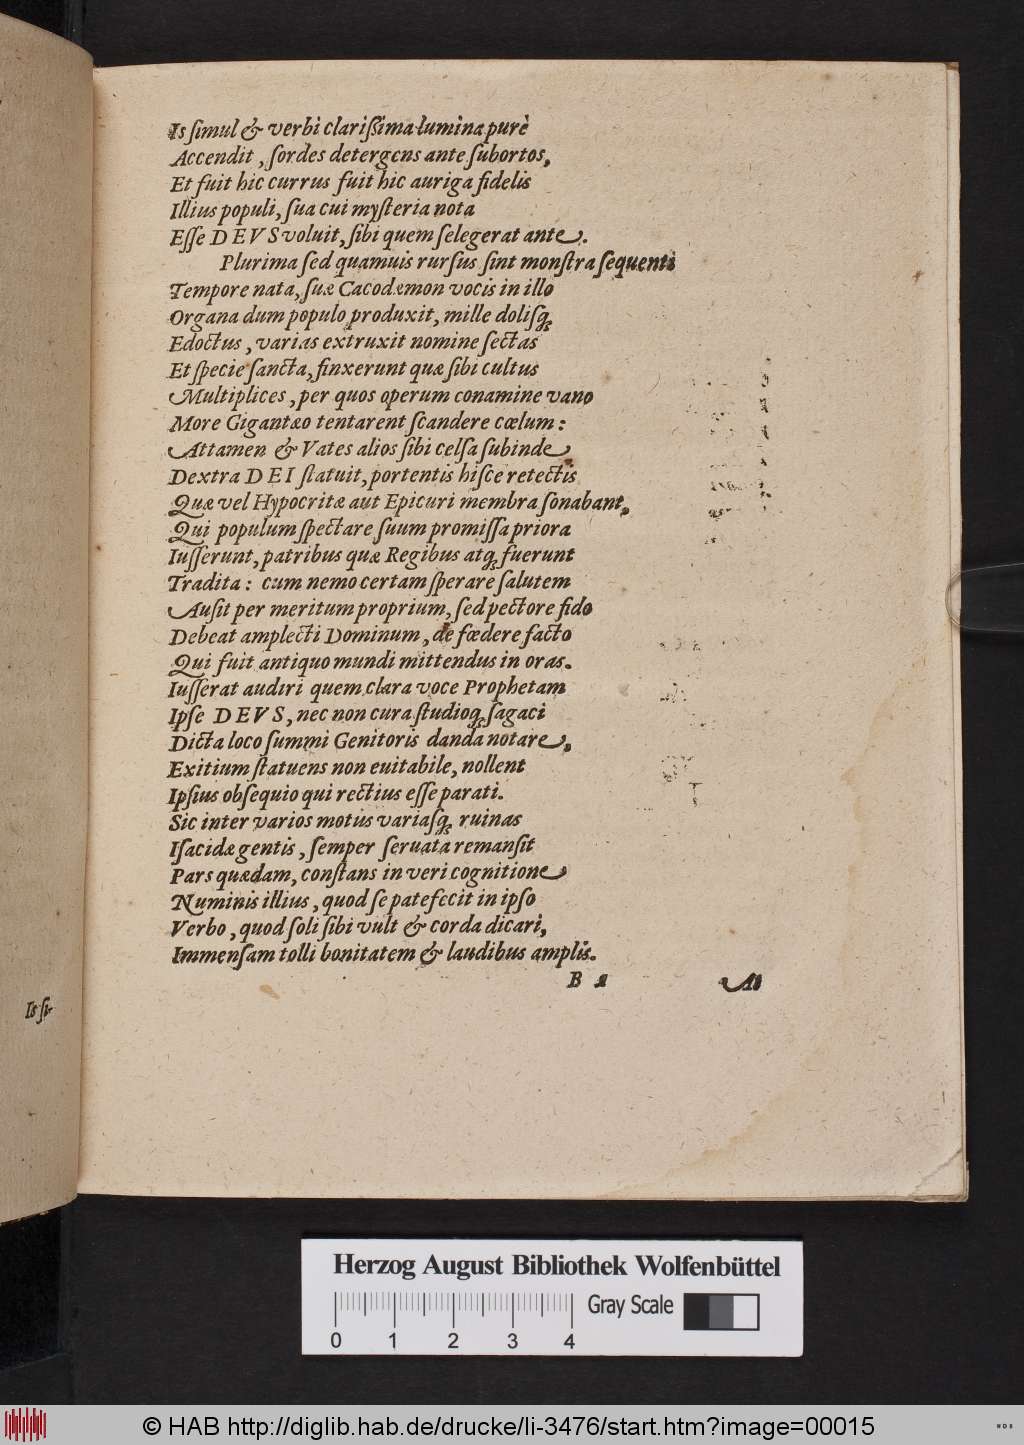 Is ſimul & verbi clariſsima lumina purè
Accendit, ſordes detergens ante ſubortos,
Et fuit hic currus fuit hic auriga fidelis
Illius populi, ſua cui myſteria nota
Eſſe DEVS voluit, ſibi quem ſelegerat ante.
Plurima ſed quamuis rurſus ſint monſtra ſequenti
Tempore nata, ſuæ Cacodæmon vocis in illo
Organa dum populo produxit, mille dolisq́;
Edoctus, varias extruxit nomine ſectas
Et ſpecie ſancta, finxerunt quæ ſibi cultus
Multiplices, per quos operum conamine vano
More Gigantæo tentarent ſcandere cœlum:
Attamen & Vates alios ſibi celſa ſubinde
Dextra DEI ſtatuit, portentis hiſce retectis
Quæ vel Hypocritæ aut Epicuri membra ſonabant,
Qui populum ſpectare ſuum promiſſa priora
Iuſſerunt, patribus quæ Regibus atq; fuerunt
Tradita: cum nemo certam ſperare ſalutem
Auſit per meritum proprium, ſed pectore fido
Debeat amplecti Dominum, de fœdere facto
Qui fuit antiquo mundi mittendus in oras.
Iuſſerat audiri quem clara voce Prophetam
Ipſe DEVS, nec non cura ſtudioq; ſagaci
Dicta loco ſummi Genitoris danda notare,
Exitium ſtatuens non euitabile, nollent
Ipſius obſequio qui rectius eſſe parati.
Sic inter varios motus variaſq; ruinas
Iſacidæ gentis, ſemper ſeruata remanſit
Pars quædam, conſtans in veri cognitione
Numinis illius, quod ſe patefecit in ipſo
Verbo, quod ſoli ſibi vult & corda dicari,
Immenſam tolli bonitatem & laudibus amplis.
B 1 At
Is ſi-
Herzog August Bibliothek Wolfenbüttel
0 1 2 3 4 Gray Scale
© HAB http://diglib.hab.de/drucke/li-3476/start.htm?image=00015